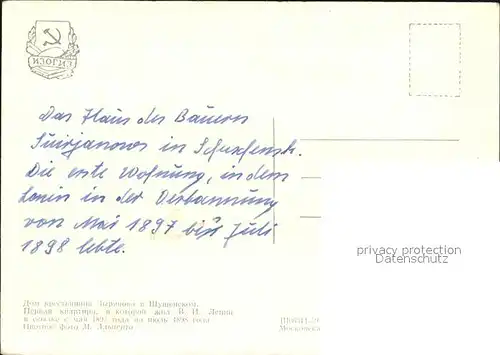 ИЗОГИЗ
Das Haus des Bauern
in
Die erste Wohnung, in dem
Lenin in der Verbannung
von Mai 1897 bis Juli
1898 lebte.
privacy protection
Datenschutz
Дом крестьянина Зырянова в Шушенском.
Первая квартира, в которой жил В. И. Ленин
в ссылке с мая 1897 года по июль 1898 года
Цветное фото М.